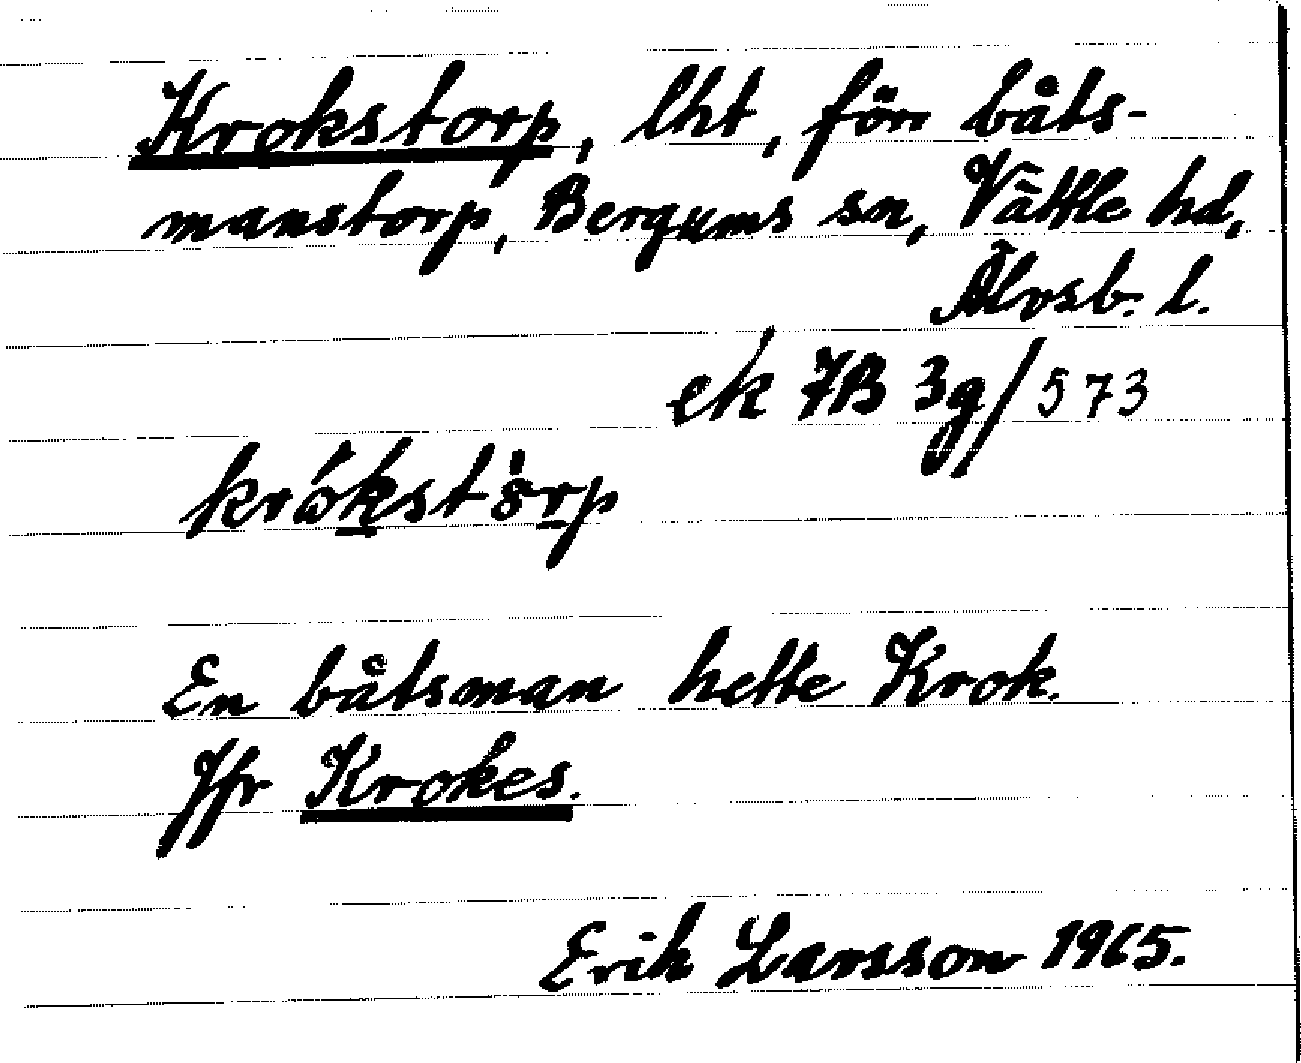 Krokstorp, lht, förr båts-
manstorp, Bergums sn, Vättle hd,
Älvsb. l.
ek 7B 3g/573
krókstòrp
En båtsman hette Krok.
Jfr Krokes.
Erik Larsson 1965.